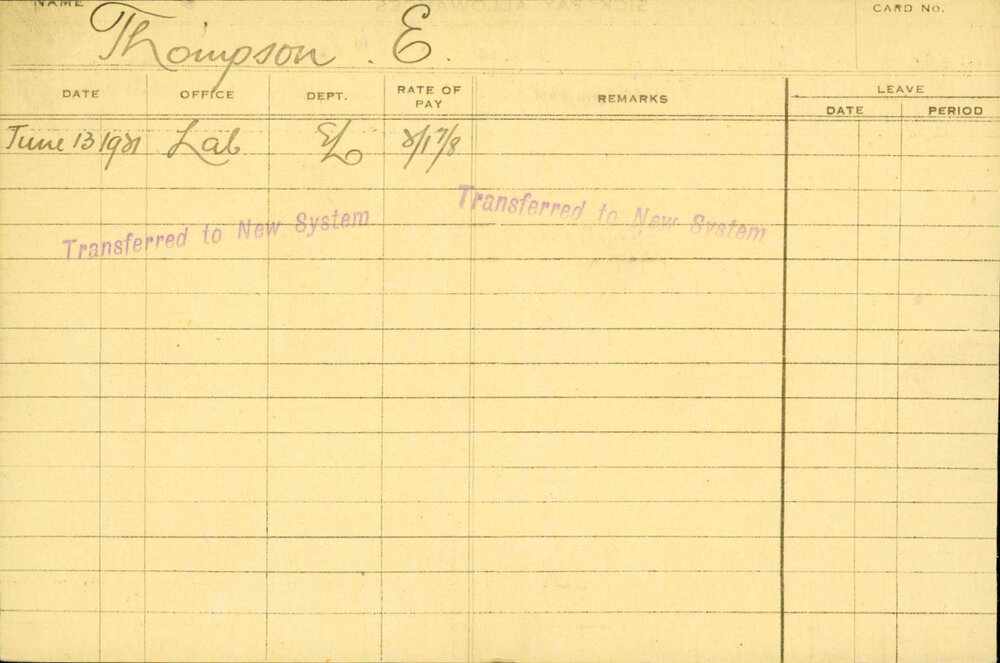 NAME
CARD NO.
Thompson . E.
DATE OFFICE DEPT. RATE OF PAY REMARKS LEAVE
DATE PERIOD
June 13 1921 Lab EL
Transferred to New System
Transferred to New System